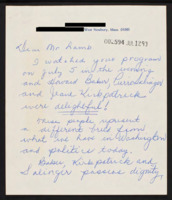 New Sudbury, Mass. 01930
00,594 JUL 12 93
Dear Mr. Lamb
I watched your programs
on July 5 in the evening
and Howard Baker,
and Jeane Kirkpatrick
were delightful!
These people represent
a different breed from
what we have in Washington
and politics today.
Baker, Kirkpatrick and
Salinger possess dignity,